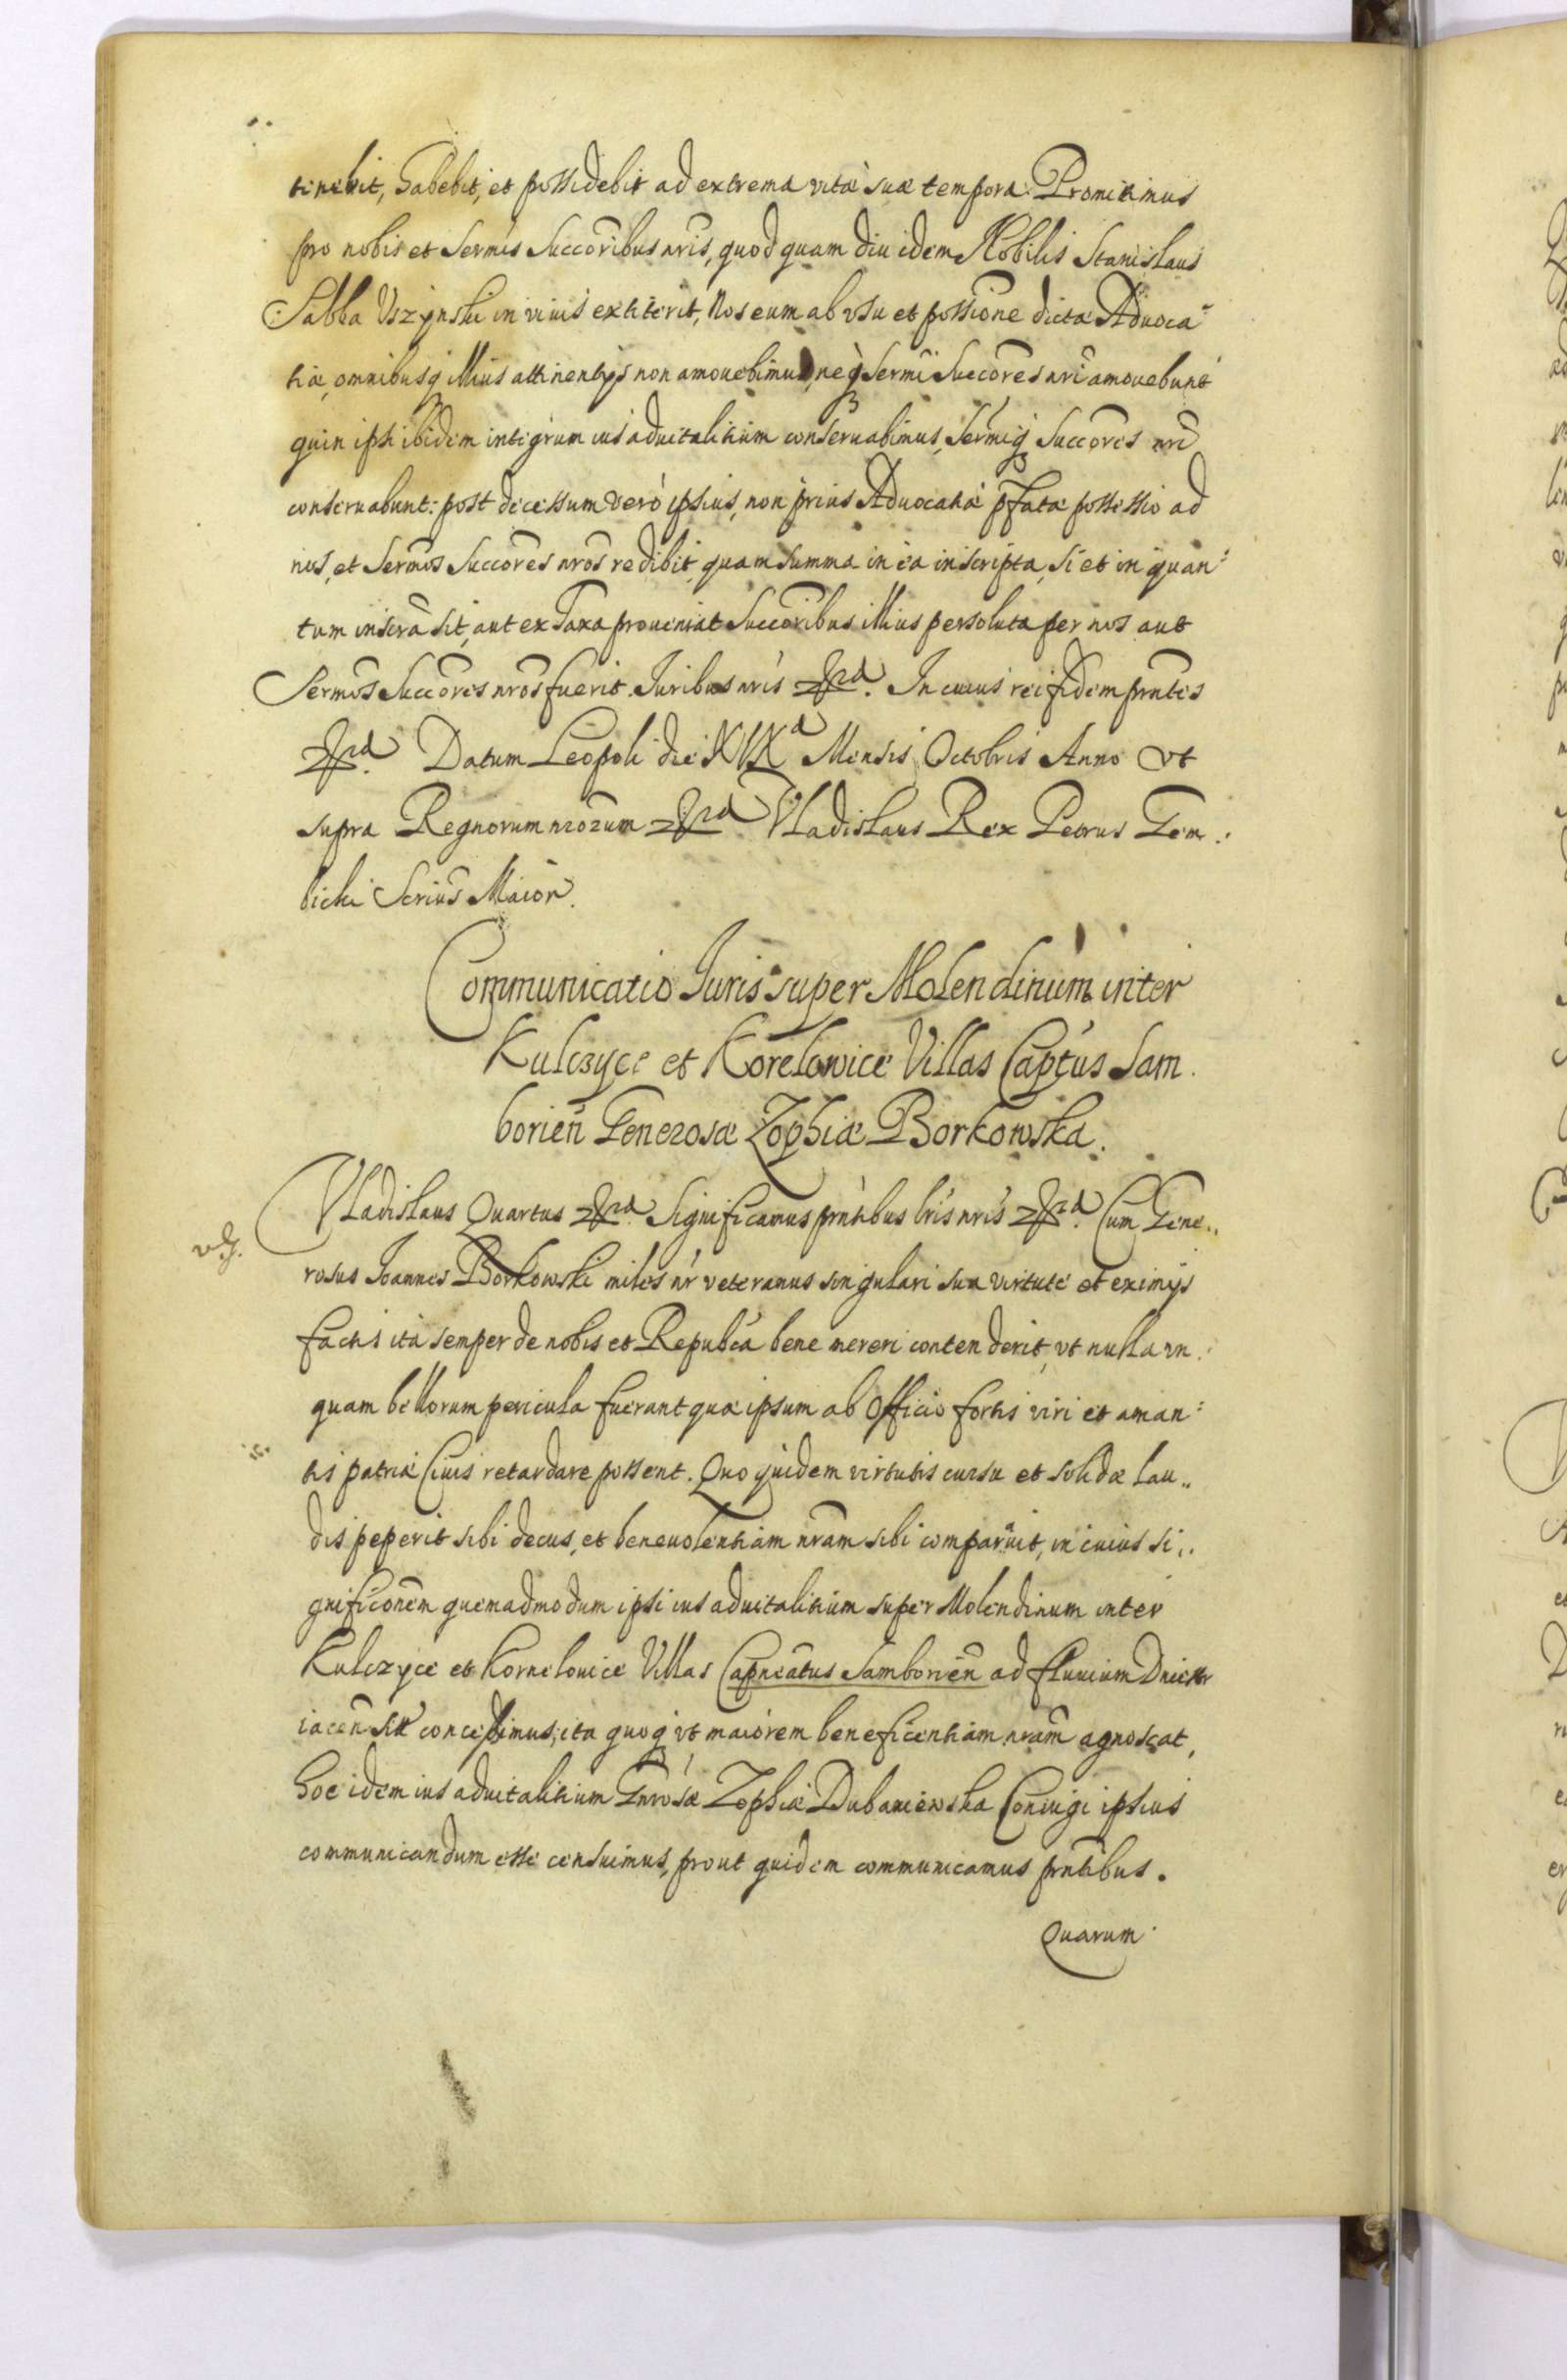 tenebit, habebit, et possidebit ad extrema vitæ suæ tempora. Promittimus
pro nobis et Sermis Succoribus nris, quod quam diu idem Nobilis Stanislaus
Sabba Uszynski in vivis extiterit, Nos eum ab usu et possione dictæ Advoca-
tiæ, omnibusq illius attinentijs non amovebimus, neq Sermi Succores nri amovebunt
quin ipsi ibidem integrum ius advitalitium conservabimus, Sermiq Succores nri
conservabunt: post decessum vero ipsius, non prius Advocatiæ pfatæ possessio ad
nos, et Sermos Succores nros redibit, quam summa in ea inscripta, si et in quan-
tum inscra sit, aut ex Taxa proveniat Succoribus illius persoluta per nos aut
Sermos Succores nros fuerit. Juribus nris &ra. In cuius rei fidem prntes
&ra. Datum Leopoli die XIX a Mensis Octobris Anno ut
supra Regnorum nrorum &ra. Vladislaus Rex Petrus Gem:
bicki Scrius Maior.
Communicatio Juris super Molendinum inter
Kulczyce et Korelowice Villas Captus Sam.
borien Generosæ Zophiæ Borkowska.
Vladislaus Quartus &ra. Significamus prntibus lris nris &ra. Cum Gene..
rosus Joannes Borkowski miles nr veteranus singulari sua virtute et eximijs
factis ita semper de nobis et Republca bene mereri contenderit, ut nulla un:
quam bellorum pericula fuerant quæ ipsum ab officio fortis viri et aman:
tis patriæ Civis retardare possent. Quo quidem virtutis cursu et solidæ lau..
dis peperit sibi decus, et benevolentiam nram sibi comparavit, in cuius si..
gnificonem quemadmodum ipsi ius advitalitium super Molendinum inter
Kulczyce et Kornelovice Villas Capneatus Samborien ad fluvium Dniestr
iacen sitt concessimus; ita quoq ut maiorem beneficentiam nram agnoscat,
hoc idem ius advitalitium Gnrosæ Zophiæ Dubaniewska Coniugi ipsius
communicandum esse censuimus, prout quidem communicamus prntibus.
Quarum